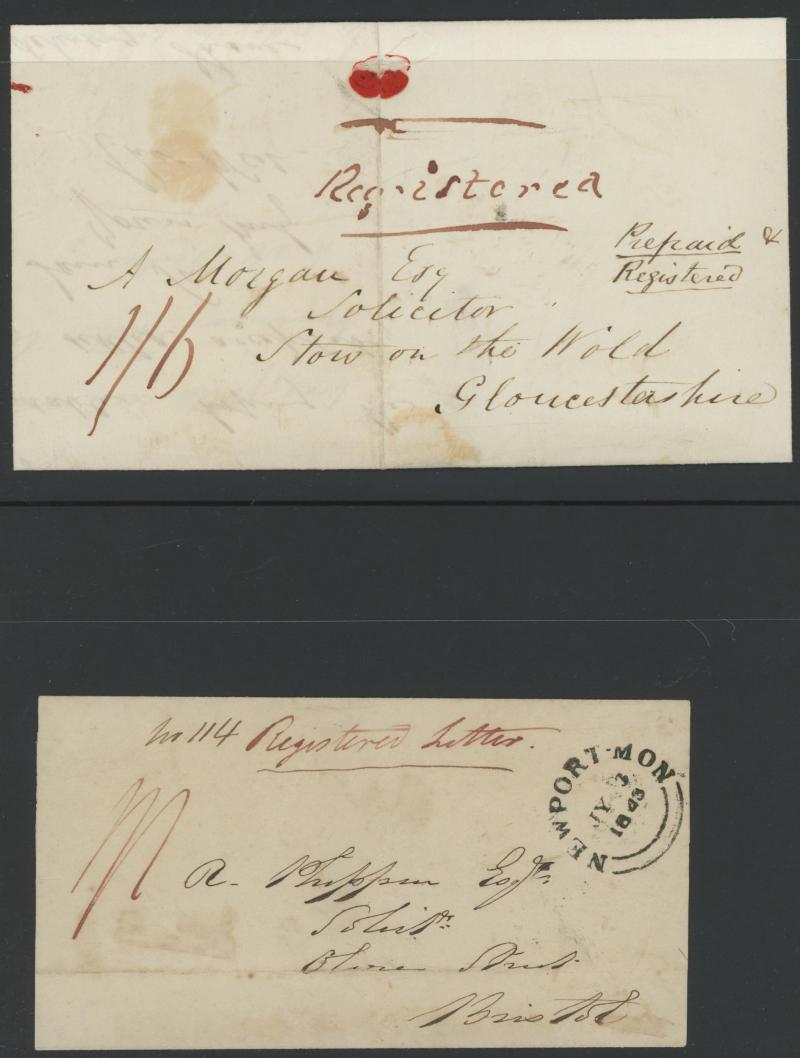 Registered
Prepaid &
Registered
A Morgan Esq
Solicitor
1/6
Stow on the Wold
Gloucestershire
No 114 Registered Letter.
NEWPORT-MON
JY 3
1843
R. Phippen Esqr
Solicitr
Street
Bristol